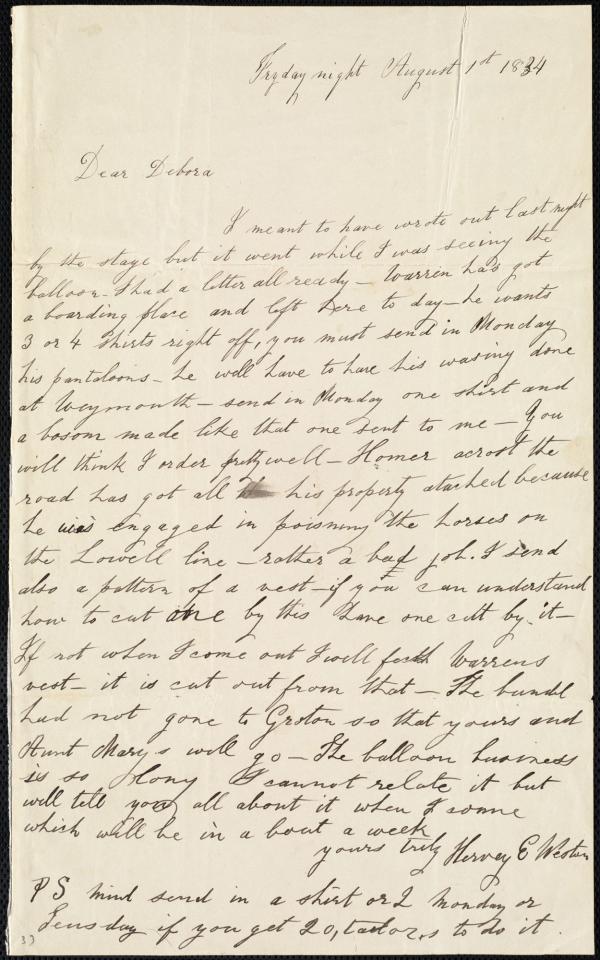 Fryday night August 1st 1834
Dear Debora
I meant to have wrote out last night
by the stage but it went while I was seeing the
balloon - I had a letter all ready - Warren has got
a boarding place and left here to day - he wants
3 or 4 shirts right off, you must send in Monday
his pantaloons - he will have to have his wasing done
at Weymouth - send in Monday one shirt and
a bosom made like that one sent to me - You
will think I order pretty well - Homer acrost the
road has got all his property atached because
he was engaged in poisning the horses on
the Lowell line - rather a bad job. I send
also a pattern of a vest - if you can understand
how to cut one by this have one cut by it -
If not when I come out I will fech Warrens
vest - it is cut out from that - The bundl
had not gone to Groton so that yours and
Aunt Marys will go - The balloon business
is so long I cannot relate it but
will tell you all about it when I come
which will be in a bout a week
yours truly Hervey E Weston
PS mind send in a shirt or 2 Monday or
Teusday if you get 20, tailors to do it.
33